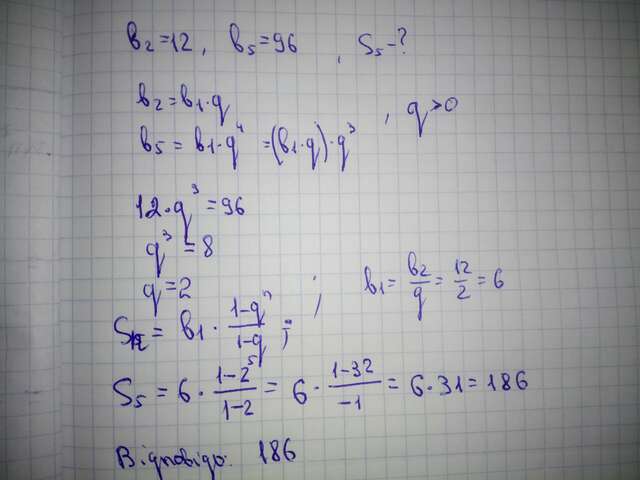 b₂=12, b₅=96, S₅-?
b₂=b₁·q
b₅=b₁·q⁴=(b₁·q)·q³, q>0
12·q³=96
q³=8
q=2; b₁=b₂/q=12/2=6
Sₙ=b₁·(1-qⁿ)/(1-q);
S₅=6·(1-2⁵)/(1-2)=6·(1-32)/(-1)=6·31=186
Відповідь: 186